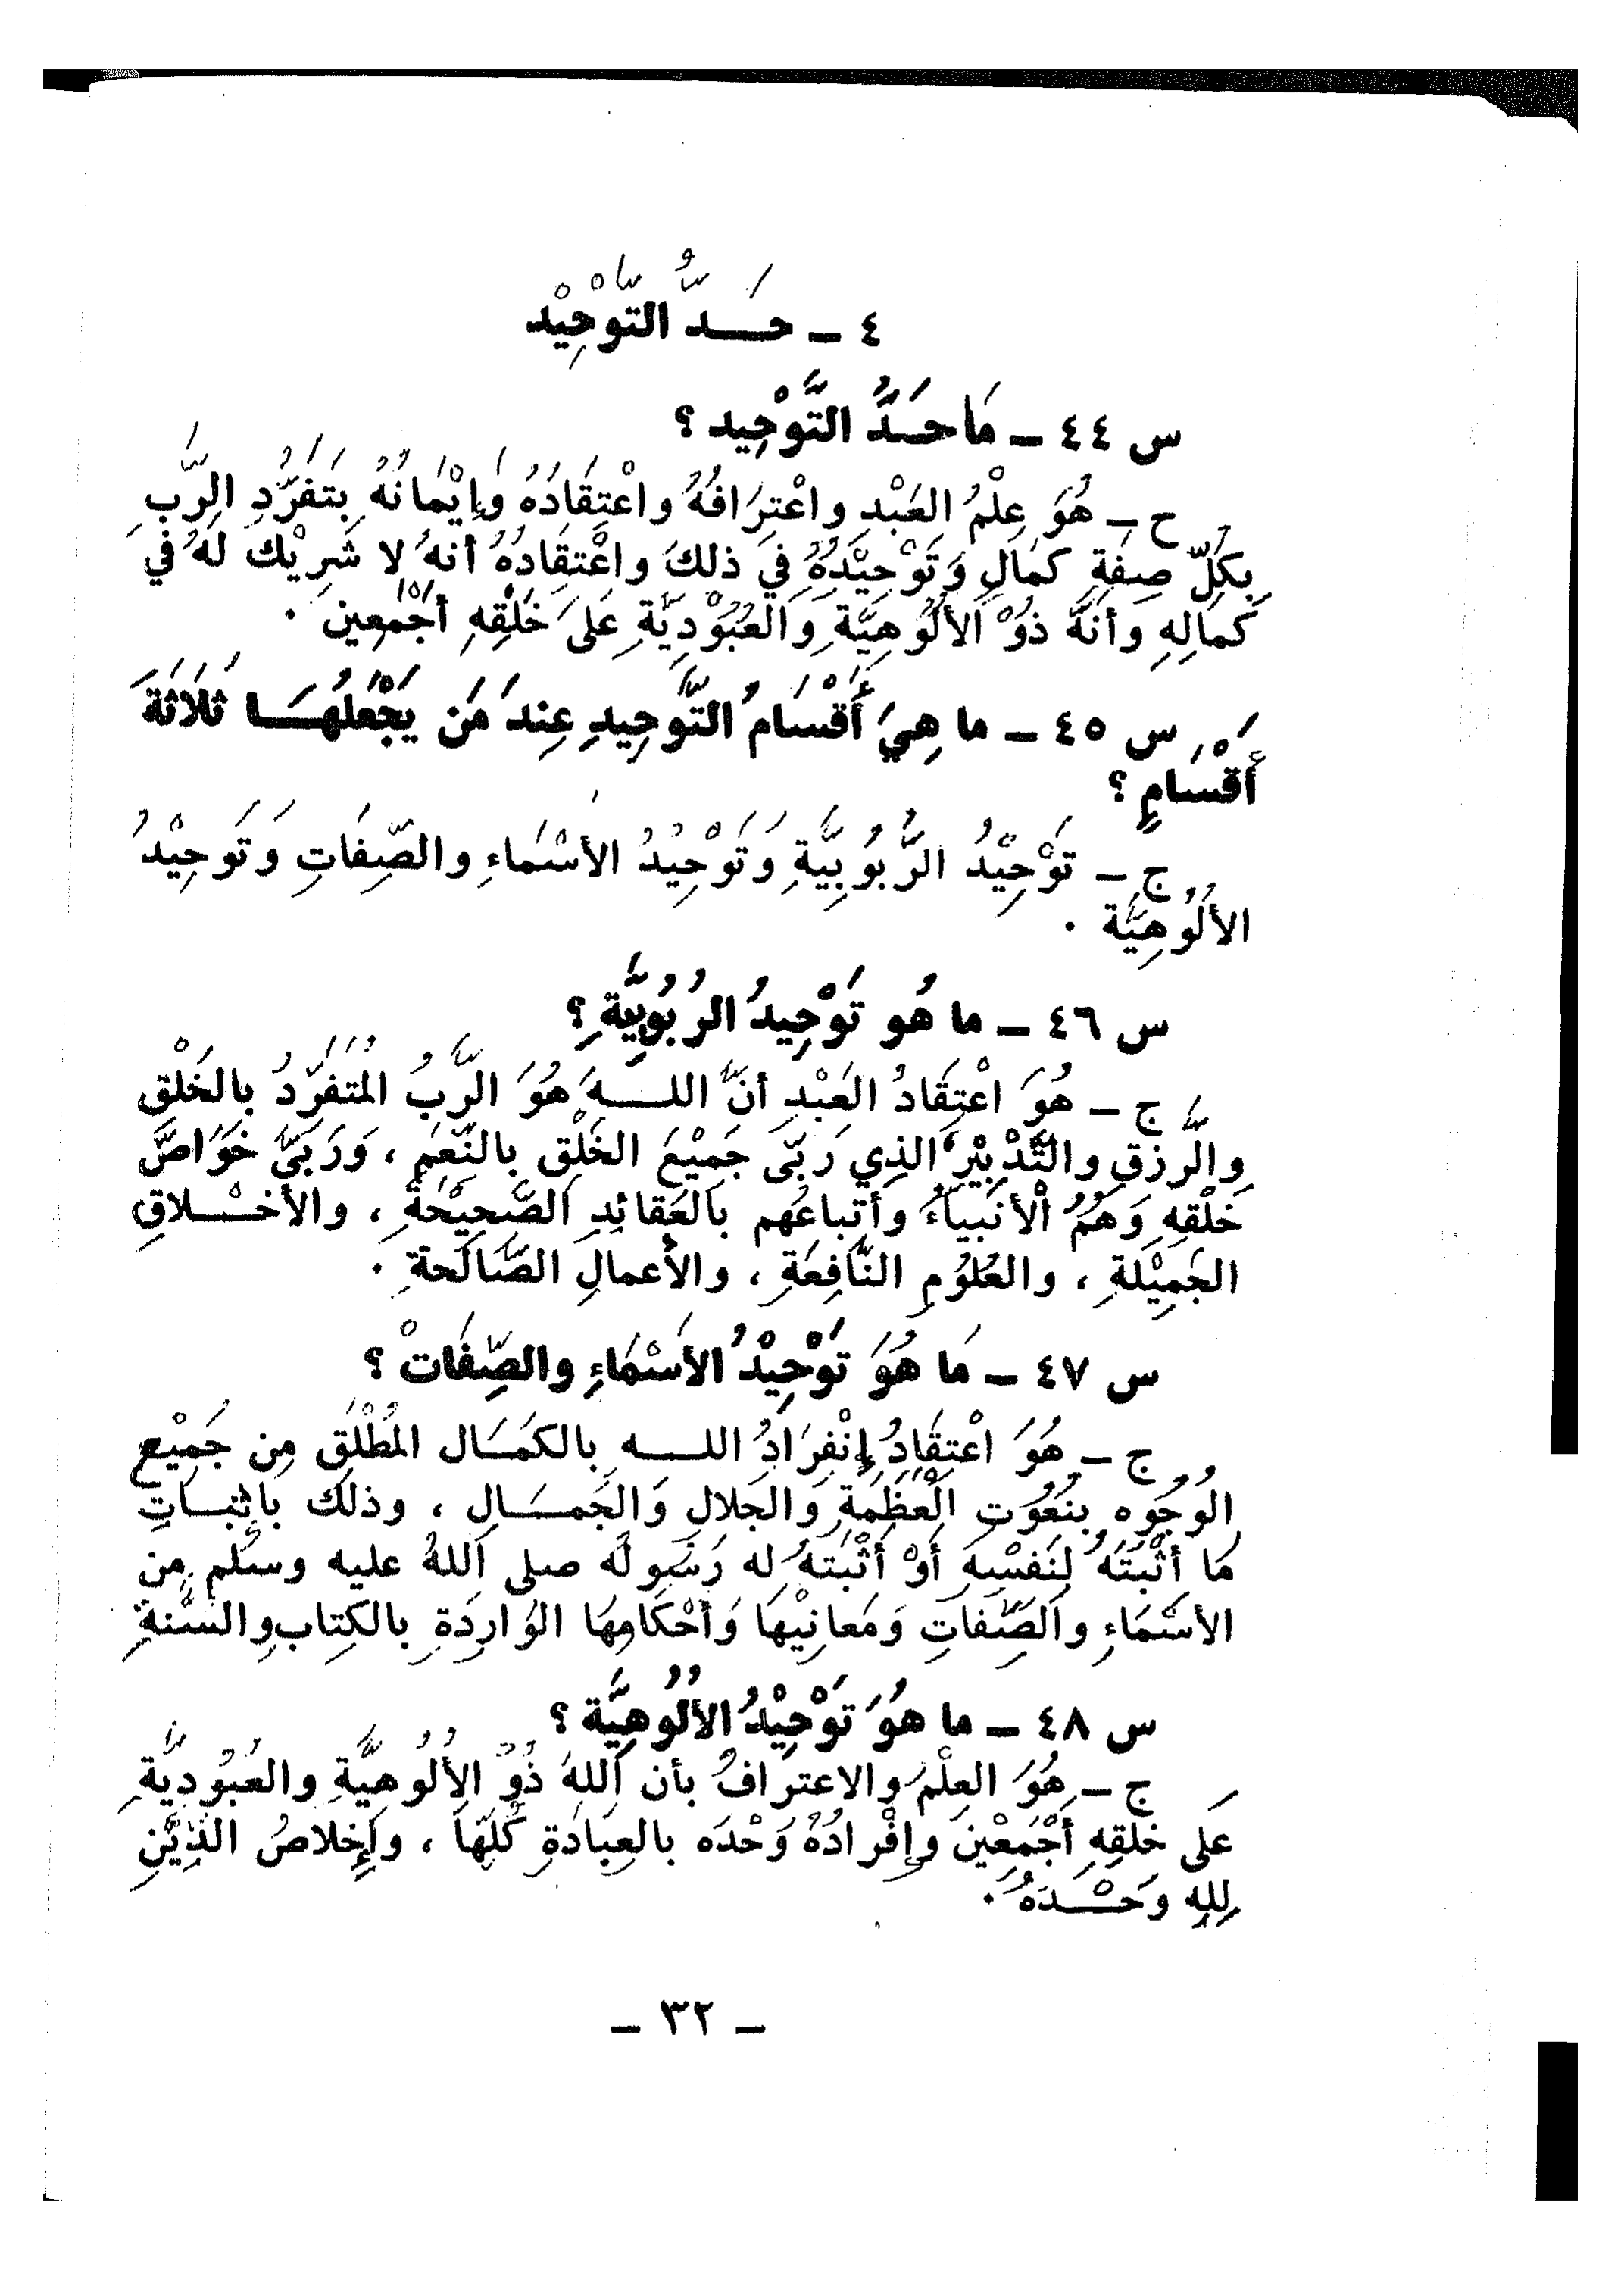 ٤ ـ حَـدُّ التَّوْحِيْدْ
س ٤٤ ـ مَا حَـدُّ التَّوْحِيد ؟
ح ـ هُوَ عِلْمُ العَبْدِ واعْتِرَافُهُ واعْتِقَادُهُ وَإِيْمَانُهُ بِتَفَرُّدِ الرَّبِّ
بِكُلِّ صِفَةِ كَمَالٍ وَتَوْحِيْدُهُ فِي ذلكَ واعْتِقَادُهُ أنهُ لا شَرِيْكَ لَهُ في
كَمَالِهِ وأنَّهُ ذُوْ الألُوهِيَّةِ والعُبُوْدِيَّةِ عَلَى خَلْقِهِ أجْمَعِين .
س ٤٥ ـ ما هِيَ أَقْسَامُ التَّوحِيدِ عِندَ مَن يَجْعَلُهَـا ثَلَاثَةَ
أَقْسَامٍ ؟
ج ـ تَوْحِيْدُ الرُّبُوبِيَّةِ وَتَوْحِيْدُ الأسْمَاءِ والصِّفَاتِ وَتَوحِيْدُ
الألُوهِيَّة .
س ٤٦ ـ ما هُو تَوْحِيدُ الرُبُوبِيَّةِ ؟
ج ـ هُوَ اعْتِقَادُ العَبْدِ أنَّ اللـهَ هُوَ الرَّبُّ المُتَفَرِّدُ بالخَلْقِ
والرَّزقِ والتَّدْبِيْرِ الذِي رَبَّى جَمِيْعَ الخَلْقِ بالنِّعَمِ ، وَرَبَّى خَوَاصَّ
خَلْقِهِ وَهُمُ الأنبياءُ وأتباعُهم بالعَقائدِ الصَّحِيْحَةِ ، والأخْـلاقِ
الجَمِيْلَةِ ، والعُلُومِ النَّافِعَةِ ، والأَعمالِ الصَّالحَةِ .
س ٤٧ ـ مَا هُوَ تَوْحِيْدُ الأسْمَاءِ والصِّفَاتْ ؟
ج ـ هُوَ اعْتِقَادُ إِنْفِرَادُ اللـه بالكَمَـال المُطْلَقِ مِن جَمِيْعِ
الوُجُوه بِنُعُوتِ الْعَظَمَةِ وَالجَلالِ وَالجَمـَالِ ، وذلكَ بإثبـاتِ
مَا أثْبَتَهُ لِنَفْسِهِ أَوْ أَثْبَتَهُ له رَسُولُه صلى اللهُ عليه وسلم مِن
الأسْمَاءِ والصِّفَاتِ وَمَعانِيْهَا وَأحْكَامِهَا الوَارِدَةِ بالكِتاب والسُّنةِ
س ٤٨ ـ ما هُوَ تَوْحِيْدُ الألُوهِيَّة ؟
ج ـ هُوَ العِلْمُ والاعترافُ بأن اللهَ ذُوْ الأُلُوهِيَّةِ والعُبُودِيَّةِ
عَلى خَلقِهِ أَجْمَعِيْنَ وإفْرادُهُ وَحْدَه بالعِبَادَةِ كُلِّهَا ، وإِخلاصُ الدِّيْنِ
لِلهِ وَحْـدَهُ .
ـ ٣٢ ـ